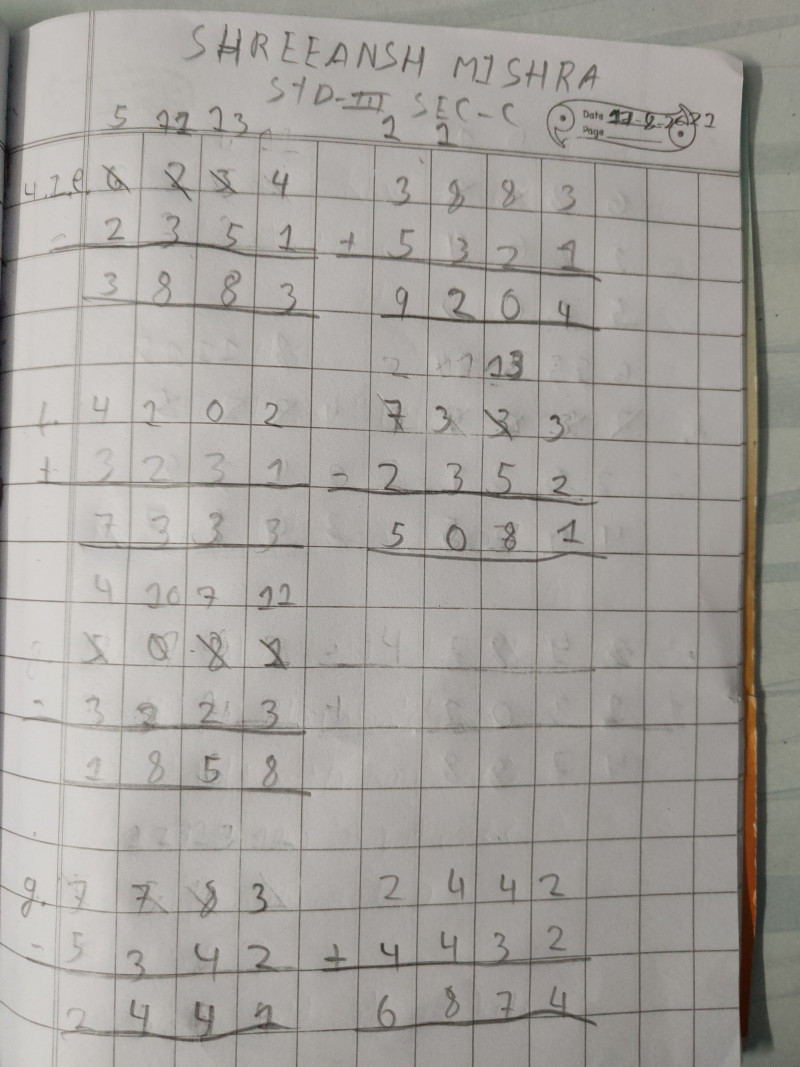 SHREEANSH MISHRA
STD-III SEC-C
Date
Page
5 11 13 1 1
6 2 3 4 3 8 8 3
- 2 3 5 1 + 5 3 2 1
3 8 8 3 9 2 0 4
2 13
f. 4 1 0 2 7 3 3 3
+ 3 2 3 1 - 2 3 5 2
7 3 3 3 5 0 8 1
4 10 7 11
5 0 8 1
- 3 2 2 3
1 8 5 8
g. 7 7 8 3 2 4 4 2
- 5 3 4 2 + 4 4 3 2
2 4 4 1 6 8 7 4